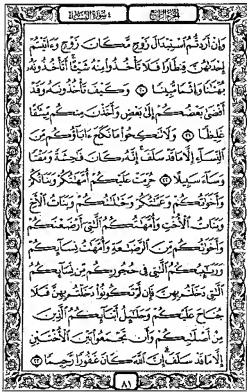 الجزء الرابع سورة النساء
وَإِنْ أَرَدتُّمُ اسْتِبْدَالَ زَوْجٍ مَّكَانَ زَوْجٍ وَءَاتَيْتُمْ
إِحْدَىٰهُنَّ قِنطَارًا فَلَا تَأْخُذُوا مِنْهُ شَيْـًٔا أَتَأْخُذُونَهُ
بُهْتَٰنًا وَإِثْمًا مُّبِينًا ٢٠ وَكَيْفَ تَأْخُذُونَهُ وَقَدْ
أَفْضَىٰ بَعْضُكُمْ إِلَىٰ بَعْضٍ وَأَخَذْنَ مِنكُم مِّيثَٰقًا
غَلِيظًا ٢١ وَلَا تَنكِحُوا مَا نَكَحَ ءَابَاؤُكُم مِّنَ
النِّسَاءِ إِلَّا مَا قَدْ سَلَفَ إِنَّهُ كَانَ فَٰحِشَةً وَمَقْتًا
وَسَاءَ سَبِيلًا ٢٢ حُرِّمَتْ عَلَيْكُمْ أُمَّهَٰتُكُمْ وَبَنَاتُكُمْ
وَأَخَوَٰتُكُمْ وَعَمَّٰتُكُمْ وَخَٰلَٰتُكُمْ وَبَنَاتُ الْأَخِ
وَبَنَاتُ الْأُخْتِ وَأُمَّهَٰتُكُمُ الَّٰتِي أَرْضَعْنَكُمْ
وَأَخَوَٰتُكُم مِّنَ الرَّضَٰعَةِ وَأُمَّهَٰتُ نِسَائِكُمْ
وَرَبَٰئِبُكُمُ الَّٰتِي فِي حُجُورِكُم مِّن نِّسَائِكُمُ
الَّٰتِي دَخَلْتُم بِهِنَّ فَإِن لَّمْ تَكُونُوا دَخَلْتُم بِهِنَّ فَلَا
جُنَاحَ عَلَيْكُمْ وَحَلَٰئِلُ أَبْنَائِكُمُ الَّذِينَ
مِنْ أَصْلَٰبِكُمْ وَأَن تَجْمَعُوا بَيْنَ الْأُخْتَيْنِ
إِلَّا مَا قَدْ سَلَفَ إِنَّ اللَّهَ كَانَ غَفُورًا رَّحِيمًا ٢٣
٨١